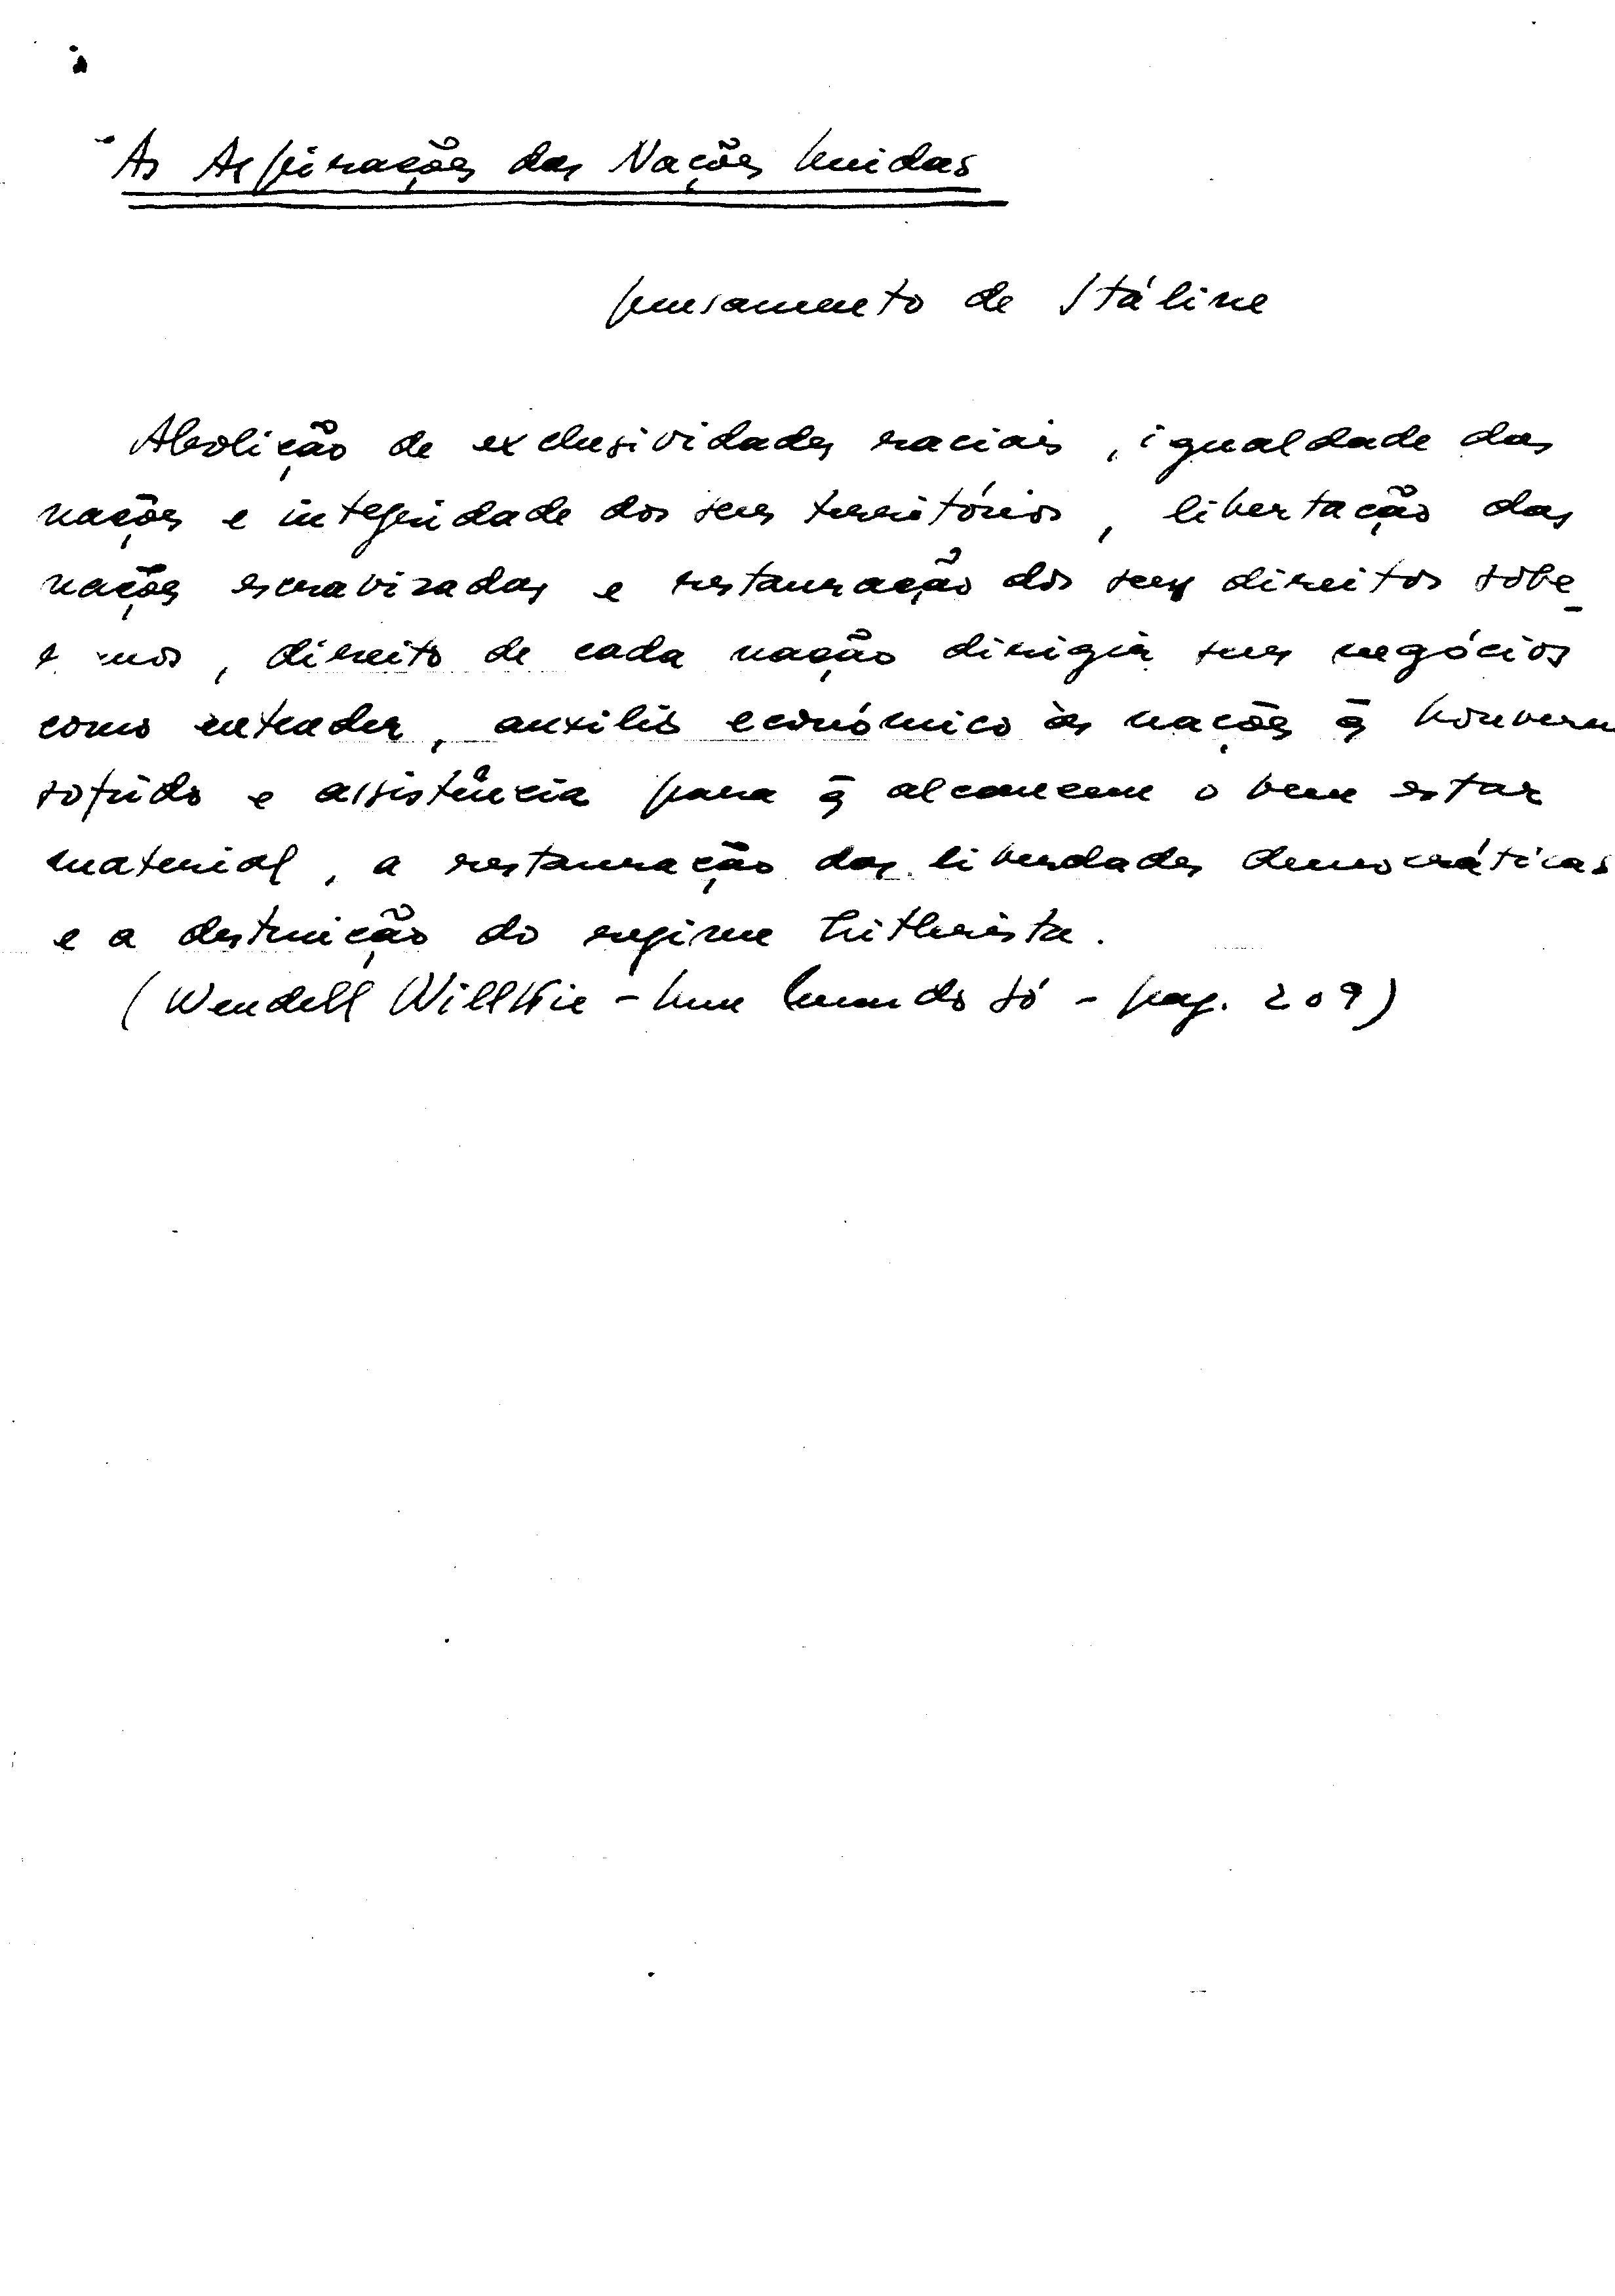 As Aspirações das Nações Unidas
pensamento de Stáline
Abolição de exclusividades raciais, igualdade das
nações e integridade dos seus territórios, libertação das
nações escravizadas e restauração dos seus direitos sobe_
nos, direito de cada nação dirigir seus negócios
como entender, auxilio económico às nações q̄ houverem
sofrido e assistência para q̄ alcancem o bem estar
material, a restauração das liberdades democráticas
e a destruição do regime hitlerista.
(Wendell Willkie - Um Mundo só - pag. 209)